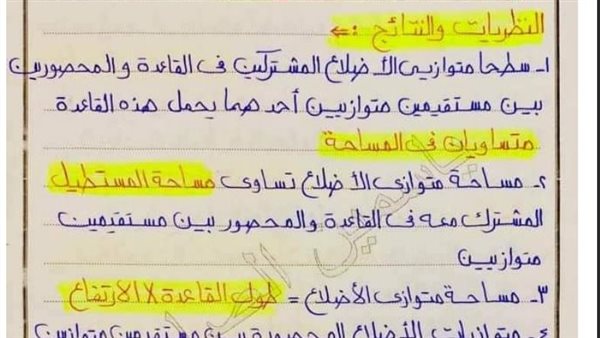 النظريات والنتائج :-
١- سطحا متوازيي الأضلاع المشتركين فى القاعدة والمحصورين
بين مستقيمين متوازيين أحدهما يحمل هذه القاعدة
متساويان فى المساحة
٢- مساحة متوازى الأضلاع تساوى مساحة المستطيل
المشترك معه فى القاعدة والمحصور بين مستقيمين
متوازيين
٣- مساحة متوازى الأضلاع = طول القاعدة X الارتفاع
٤- متوازيات الأضلاع المحصورة بين مستقيمين متوازيين